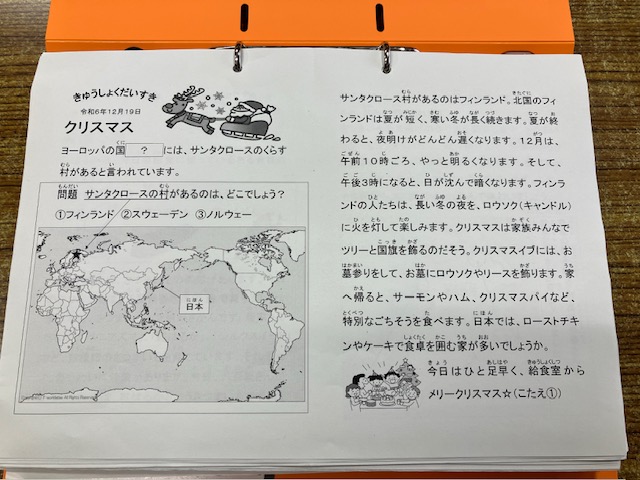 きゅうしょくだいすき
令和6年12月19日
クリスマス
ヨーロッパの国 ? には、サンタクロースのくらす
村があると言われています。
問題 サンタクロースの村があるのは、どこでしょう？
①フィンランド ②スウェーデン ③ノルウェー
日本
サンタクロース村があるのはフィンランド。北国のフィ
ンランドは夏が短く、寒い冬が長く続きます。夏が終
わると、夜明けがどんどん遅くなります。12月は、
午前10時ごろ、やっと明るくなります。そして、
午後3時になると、日が沈んで暗くなります。フィンラ
ンドの人たちは、長い冬の夜を、ロウソク(キャンドル)
に火を灯して楽しみます。クリスマスは家族みんなで
ツリーと国旗を飾るのだそう。クリスマスイブには、お
墓参りをして、お墓にロウソクやリースを飾ります。家
へ帰ると、サーモンやハム、クリスマスパイなど、
特別なごちそうを食べます。日本では、ローストチキ
ンやケーキで食卓を囲む家が多いでしょうか。
今日はひと足早く、給食室から
メリークリスマス☆(こたえ①)